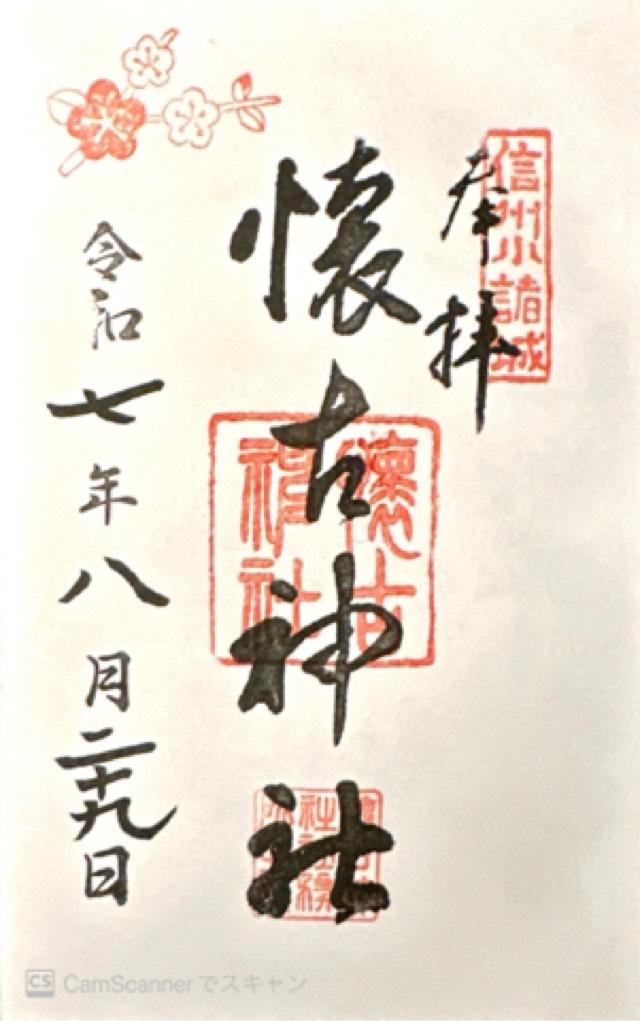 信州小諸城
奉拝
懐古神社
懐古
神社
令和七年八月二十九日
CS CamScannerでスキャン